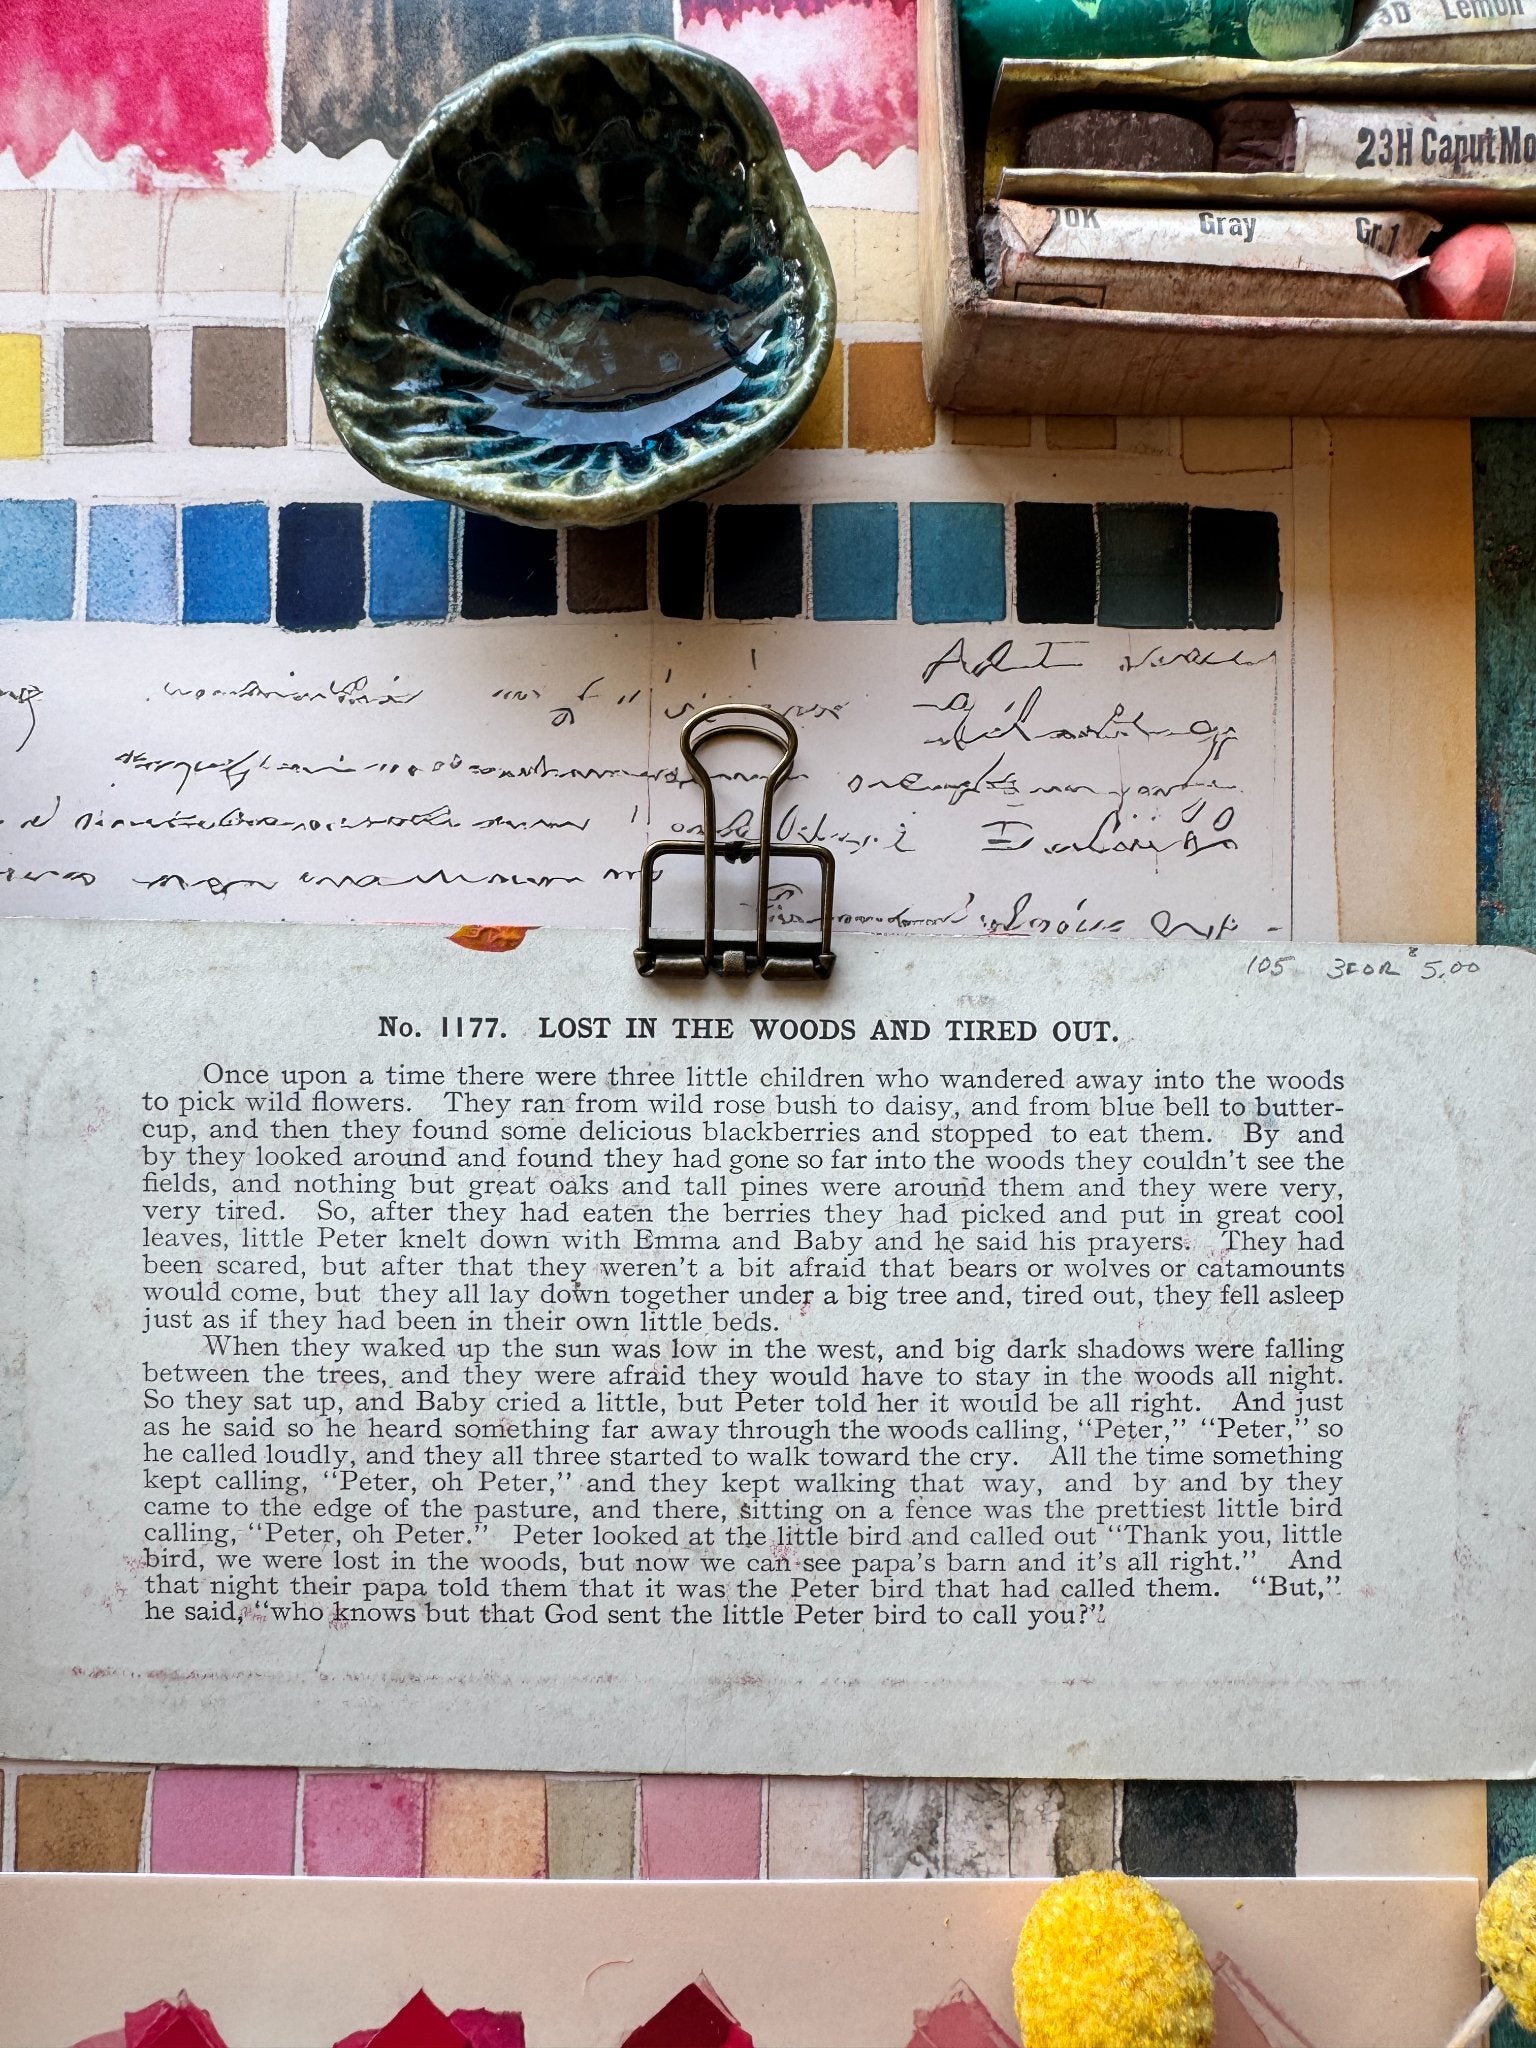 3D Lemon
23H Caput Mo
Gray Gr.1
105 3 FOR $5.00
No. 1177. LOST IN THE WOODS AND TIRED OUT.
Once upon a time there were three little children who wandered away into the woods
to pick wild flowers. They ran from wild rose bush to daisy, and from blue bell to butter-
cup, and then they found some delicious blackberries and stopped to eat them. By and
by they looked around and found they had gone so far into the woods they couldn't see the
fields, and nothing but great oaks and tall pines were around them and they were very,
very tired. So, after they had eaten the berries they had picked and put in great cool
leaves, little Peter knelt down with Emma and Baby and he said his prayers. They had
been scared, but after that they weren't a bit afraid that bears or wolves or catamounts
would come, but they all lay down together under a big tree and, tired out, they fell asleep
just as if they had been in their own little beds.
When they waked up the sun was low in the west, and big dark shadows were falling
between the trees, and they were afraid they would have to stay in the woods all night.
So they sat up, and Baby cried a little, but Peter told her it would be all right. And just
as he said so he heard something far away through the woods calling, "Peter," "Peter," so
he called loudly, and they all three started to walk toward the cry. All the time something
kept calling, "Peter, oh Peter," and they kept walking that way, and by and by they
came to the edge of the pasture, and there, sitting on a fence was the prettiest little bird
calling, "Peter, oh Peter." Peter looked at the little bird and called out "Thank you, little
bird, we were lost in the woods, but now we can see papa's barn and it's all right." And
that night their papa told them that it was the Peter bird that had called them. "But,"
he said, "who knows but that God sent the little Peter bird to call you?"